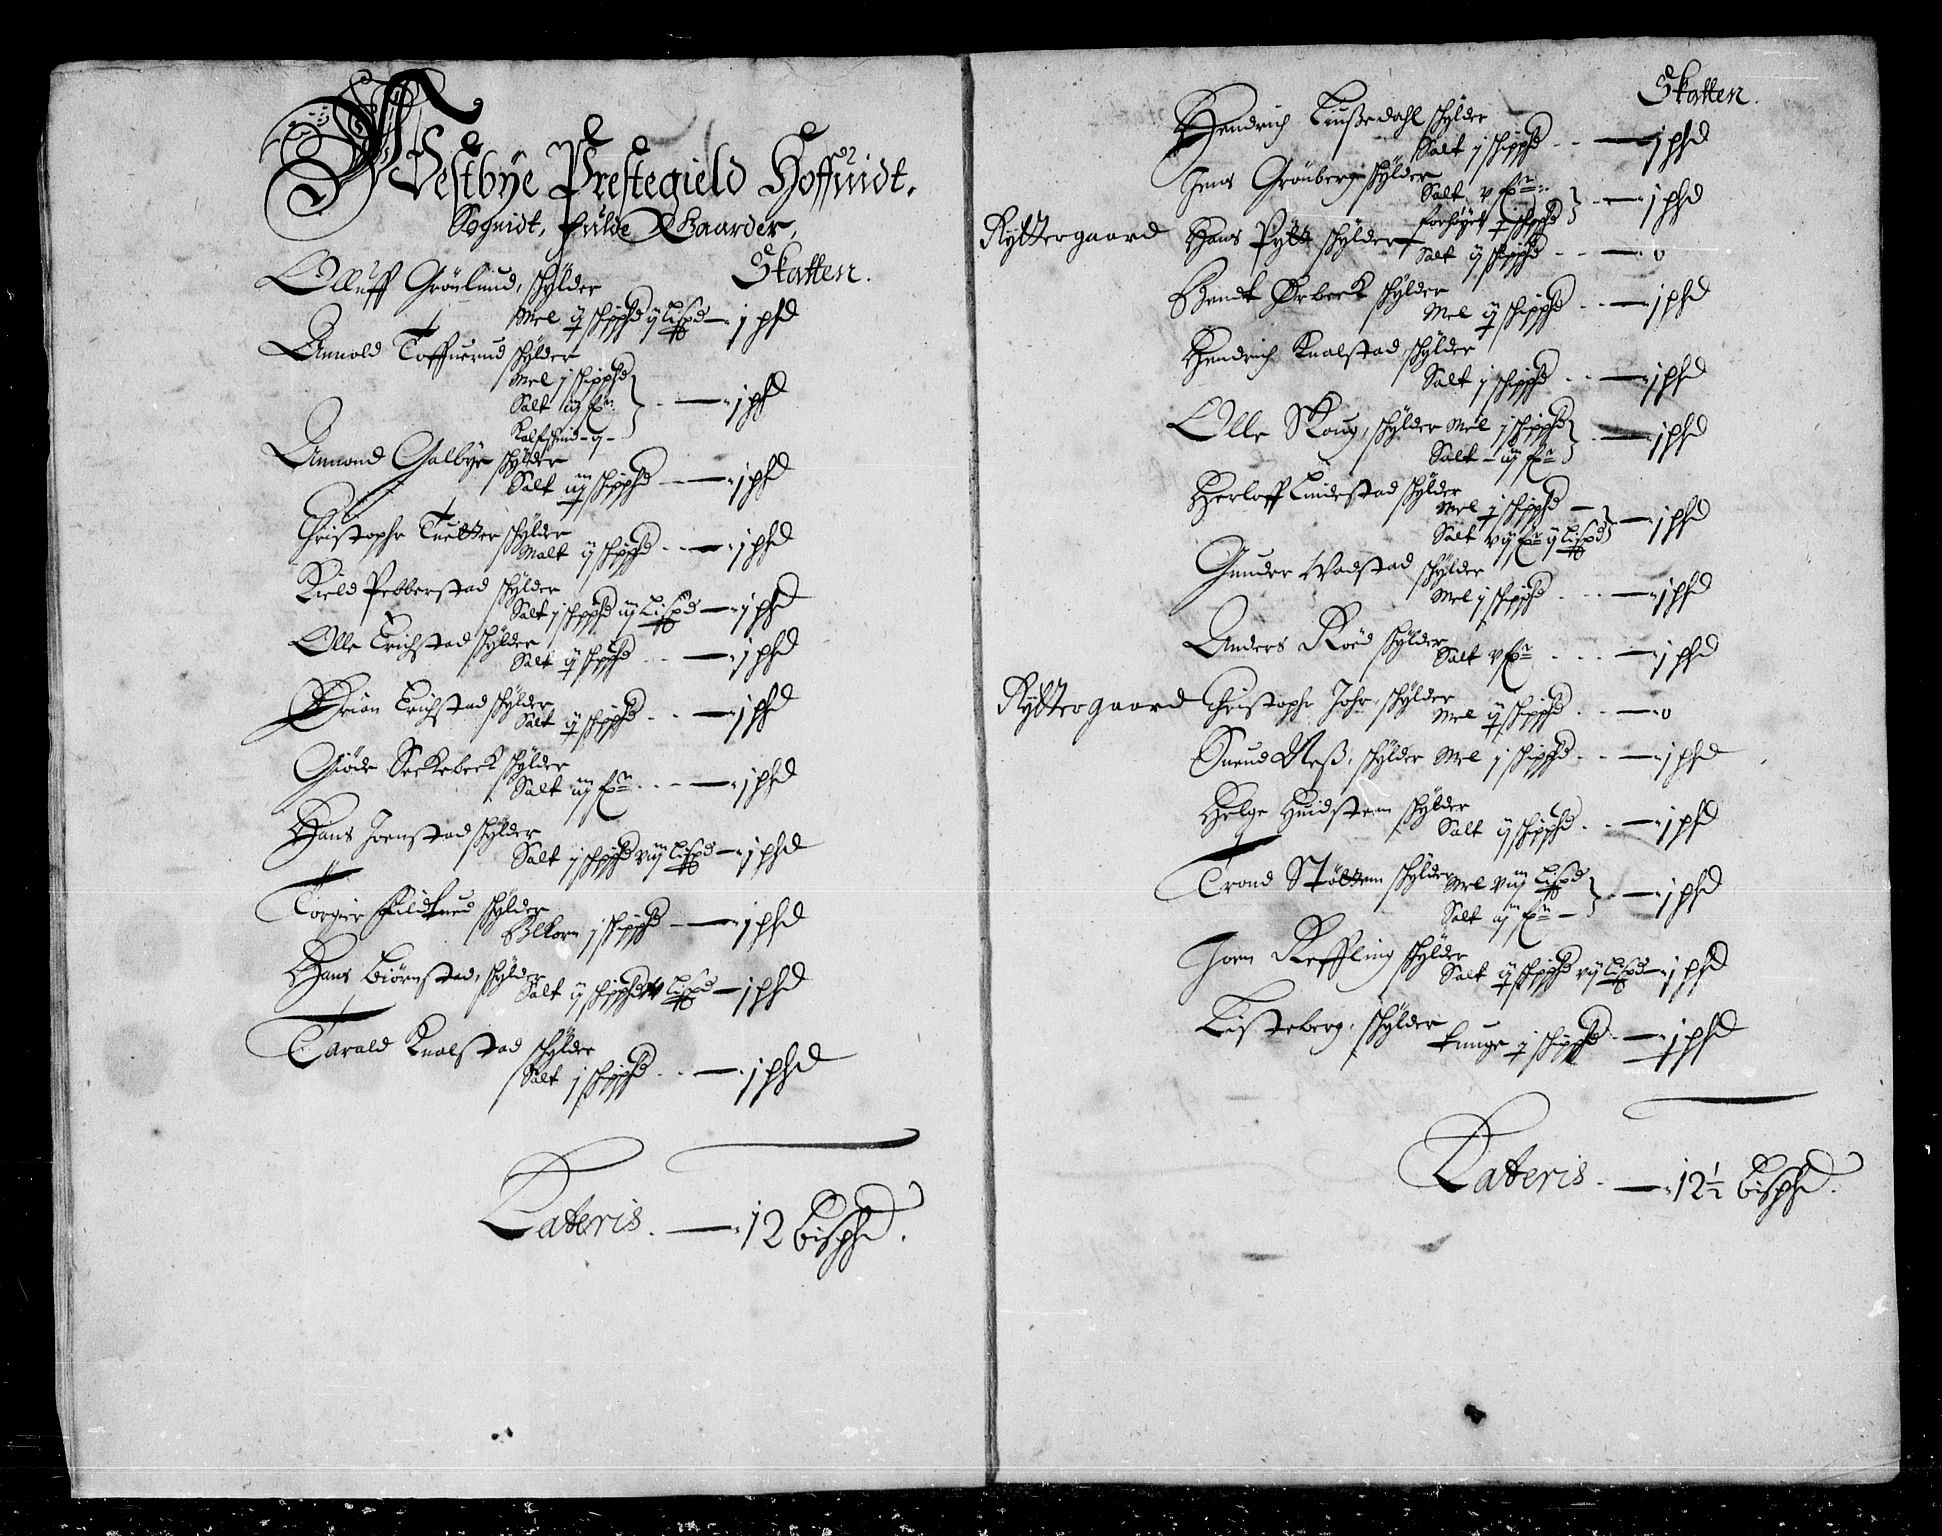 Vestbÿe Prestegield Hoffuidt.
Sognidt, fulde Gaarder,
Skatten.
Olluff Grönlund, schÿlder
Mel ij schippd ij Lispd — j phd
Annold Toffuerud schÿlder
Mel j schippd
Salt iij fr.
Kalfschind - j - — j phd
Amund Galbÿe schÿlder
Salt iij schippd — j phd
Christopher Tuetter schÿlder
Malt ij schippd — j phd
Kield Pebberstad schÿlder
Salt j schippd iij Lispd — j phd
Olle Erichstad schÿlder
Salt ij schippd — j phd
Brian Erichstad schÿlder
Salt ij schippd — j phd
Giöde Seckebeck schÿlder
Salt iij fr. — j phd
Hans Joenstad schÿlder
Salt j schippd viij Lispd — j phd
Torgier schÿlder
Blkorn j schippd — j phd
Hans Biörnstad, schÿlder
Salt ij schippd Lispd — j phd
Tarald Knalstad schÿlder
Salt j schippd — j phd
Lateris. — 12 bisphd.
Skatten.
Hendrich Liussedahl schÿlder
Salt j schippd — j phd
Jens Grönberg schÿlder
Salt v fr.
forhöÿet j schippd — j phd
Ryttergaard Hans Pÿtt schÿlder
Salt ij schippd — 0
Bendt Örbeck schÿlder
Mel ij schippd — j phd
Hendrich Knalstad schÿlder
Salt j schippd — j phd
Olle Skoug, schÿlder Mel j schippd
Salt - iij fr. — j phd
Herloff Lindestad schÿlder
Mel j schippd —
Salt vij fr. ij Lispd — j phd
Gunder Wadstad schÿlder
Mel j schippd — j phd
Anders Roed schÿlder
Salt v fr. — j phd
Ryttergaard Christopher Johr, schÿlder
Mel ij schippd — 0
Suend Ness, schÿlder Mel j schippd — j phd
Helge Huidsteen schÿlder
Salt ij schippd — j phd
Trond Stöttem schÿlder Mel viij Lispd
Salt iij fr. — j phd
Joen Reffling schÿlder
Salt ij schippd vij Lispd — j phd
Listeberg, schÿlder
tunge j schippd — j phd
Lateris. — 12½ bisphd.